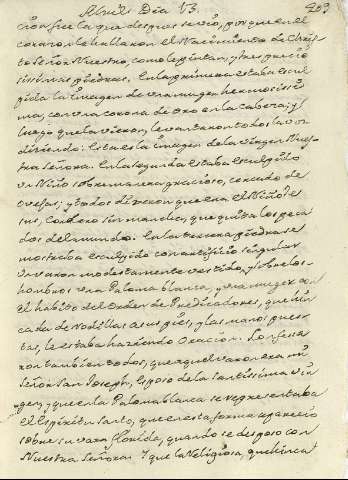 Abril. Dia 13. 403
cion fue la que despues se vio, porque en el
corazon le hallaron el Nacimiento de Chris-
to Señor Nuestro, como le pintan; y tres precio
sissimas piedras. En la primera estaba escul
pida la imagen de una muger hermosissi
ma, con una corona de oro en la cabeza; y
luego que la vieron, levantaron todos la voz
diziendo: Esta es la imagen de la Virgen Nues
tra Señora. En la segunda estaba esculpido
un Niño sobremanera gracioso, cercado de
ovejas; y todos dixeron que era el Niño Je
sus, Cordero sin mancha, que quita los peca
dos del mundo. En la tercera piedra se
mostraba esculpido con artificio singular
un varon modestamente vestido, y sobre los
hombros una Paloma blanca, y una muger con
el habito del Orden de Predicadores, que hin
cada de rodillas a sus pies, y las manos pues
tas, le estaba haziendo oracion. Confessa
ron tambien todos, que aquel varon era mi
Señor San Joseph, Esposo de la Santissima Vir
gen; y que en la Paloma blanca se representaba
el Espiritu Santo, que en esta forma aparecio
sobre su vara florida, quando se desposo con
Nuestra Señora: Y que la Religiosa, que hinca